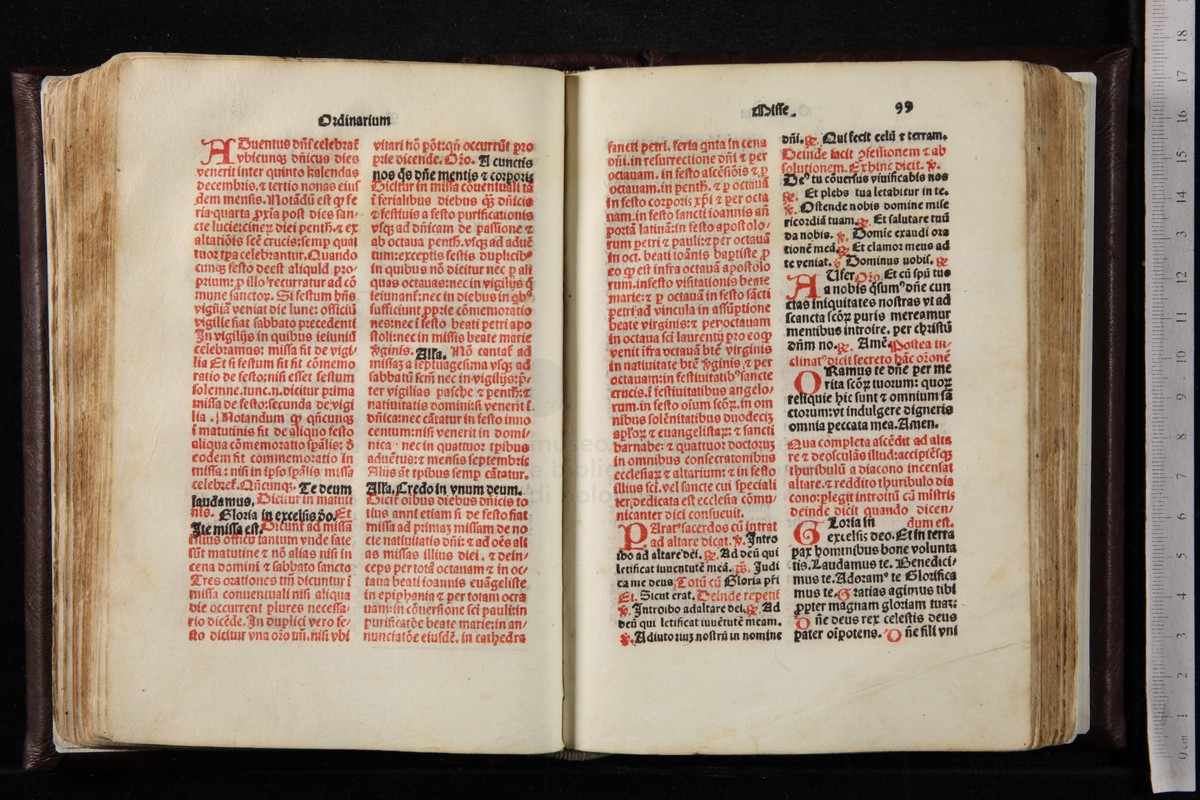 Ordinarium
ADuentus dñi celebrat̃
vbicunqꝫ dñicus dies
venerit inter quinto kalendas
decembris. ⁊ tertio nonas eius
dem mensis. Notādū est ꝙ fe
ria quarta ꝓxīa post dies san-
cte lucie: cinerꝫ diei penth. ⁊ ex
altatiōis scē crucis: semp quat
tuor tꝑa celebrantur. Quando
cunqꝫ festo deest aliquid pro-
prium: ꝑ illo recurratur ad cō
mune sanctoꝝ. Si festum hñs
vigiliā veniat die lune: officiū
vigilie fiat sabbato precedenti
In vigilijs in quibus ieiuniū
celebramus: missa fit de vigi-
lia Et si festum sit fit cōmemo
ratio de festo: nisi esset festum
solemne. tunc. n. dicitur prima
missa de festo: secunda de vigi
lia. Notandum ꝙ qñcunqꝫ
ī matutinis fit de aliquo festo
aliqua cōmemoratio spālis: ī
eodem fit commemoratio in
missa: nisi in ipso spālis missa
celebret̃. Qñcunqꝫ. Te deum
laudamus. Dicitur in matuti
nis. Gloria in excelsis do. Et
Ite missa est. Dicunt̃ ad missā
cena domini ⁊ sabbato sancto
Tres orationes tm̄ dicuntur ī
missa conuentuali nisi aliqua
die occurrent plures necessa/
rio dicēde. In duplici vero fe-
sto dicitur vna oro tm̄. nisi vbi
vitari nō pōt: qn̄ occurrūt pro
prie dicende. Oro. A cunctis
nos qs dñe mentis ⁊ corporis
Dicitur in missa conuentuali tā
ī ferialibus diebus qꝫ dñicis
⁊ festiuis a festo purificationis
vsqꝫ ad dñicam de passione ⁊
ab octaua penth. vsqꝫ ad aduē
tum: exceptis festis duplicibꝰ
in quibus nō dicitur nec ꝑ ali
quas octauas: nec in vigilijs ꝗ
ieiunant̃: nec in diebus in qbꝰ
sufficiunt ꝓprie cōmemoratio
nes: nec ī festo beati petri apo
stoli: nec in missis beate marie
ꝟginis. Alla. Nō cantat̃ ad
missaꝫ a septuagesima vsqꝫ ad
sabbatū scm̄ nec in vigilijs: p̄-
ter vigilias pasche ⁊ penth: ⁊
natiuitatis domini: si venerit ī
dñica: nec cātatur in festo inno
centum: nisi venerit in domi-
nica. nec in quattuor tꝑibus
aduētus: ⁊ mensis septembris
Alijs aūt tꝑibus semp cātatur.
Alla. Credo in vnum deum.
Dicit̃ oībus diebus dñicis to
tius anni etiam si de festo fiat
missa ad primaꝫ missam de no
cte natiuitatis dñi: ⁊ ad oēs ali
as missas illius diei. ⁊ dein-
ceps per totā octauam ⁊ in oc-
taua beati ioannis euāgeliste
in epiphania ⁊ per totam octa
uam: in cōuersione sci pauli: in
purificatōe beate marie: in an-
nunciatōe eiusdē. in cathedra
Misse. 99
sancti petri. feria qnta in cena
dñi. in resurrectione dñi ⁊ per
octauam. in festo ascēsiōis ⁊ ꝑ
octauam. in penth. ⁊ ꝑ octauā
in festo corporis xp̄i ⁊ per octa
uam. in festo sancti ioannis añ
portā latinā: in festo apostolo/
rum petri ⁊ pauli: ⁊ per octauā
in oct. beati ioānis baptiste ꝑ
eo ꝙ est infra octauā apostolo
rum. in festo visitationis beate
marie: ⁊ ꝑ octauā in festo sācti
petri ad vincula in assūptione
beate virginis: ⁊ per octauam
in octaua sci laurentij pro eo ꝙ
venit īfra octauā btē virginis
in natiuitate btē ꝟginis ⁊ per
octauam: in festiuitatibꝰ sancte
crucis. ī festiuitatibus angelo/
rum. in festo oīum scōꝝ. in om
nibus solēnitatibus duodecī
apl̄oꝝ ⁊ euangelistaꝝ: ⁊ sancti
barnabe: ⁊ quattuor doctorum
in omnibus consecrationibus
ecclesiaꝝ ⁊ altarium: ⁊ in festo
illius sci. vel sancte cui speciali
ter dedicata est ecclesia cōmu/
nicanter dici consueuit.
PAratꝰ sacerdos cū intrat
ad altare dicat. ꝟ. Intro
ibo ad altare dei. ℟. Ad deū qui
letificat iuuentutē meā. ps. Judi
ca me deus. Totū cū Gloria pr̄i
Et. Sicut erat. Deinde repetit̃
ꝟ. Introibo ad altare dei. ℟. Ad
deū qui letificat iuuētutē meam.
ꝟ. Adiutoriuꝫ nostrū in nomine
dñi. ℟. Qui fecit celū ⁊ terram.
Deinde facit ꝯfessionem ⁊ ab
solutionem. Ex hinc dicit. ꝟ.
Deꝰ tu cōuersus viuificabis nos
℟. Et plebs tua letabitur in te.
ꝟ. Ostende nobis domine mise
ricordiā tuam. ℟. Et salutare tuū
da nobis. ꝟ. Domie exaudi ora
tionē meā. ℟. Et clamor meus ad
te veniat. ꝟ. Dominus uobis. ℟.
AUfer Oro. Et cū spū tuo
a nobis qsumꝰ dñe cun
ctas iniquitates nostras vt ad
sancta scōꝝ puris mereamur
mentibus introire. per christū
dñm no. ℟. Amē. Postea in-
clinatꝰ dicit secreto hāc oronē
ORamus te dñe per me
rita scōꝝ tuorum: quoꝝ
reliquie hic sunt ⁊ omnium sā
ctorum: vt indulgere digneris
omnia peccata mea. Amen.
Qua completa ascēdit ad alta
re ⁊ deosculās illud: accipiēsqꝫ
thuribulū a diacono incensat
altare. ⁊ reddito thuribulo dia
cono: plegit introitū cū mistris
deinde dicit quando dicen/
dum est.
GLoria in
excelsis deo. Et in terra
pax hominibus bone volunta
tis. Laudamus te. Benedici-
mus te. Adoramꝰ te Glorifica
mus te. Gratias agimus tibi
ꝓpter magnam gloriam tuaꝫ:
Dñe deus rex celestis deus
pater oīpotens. Dñe fili vni